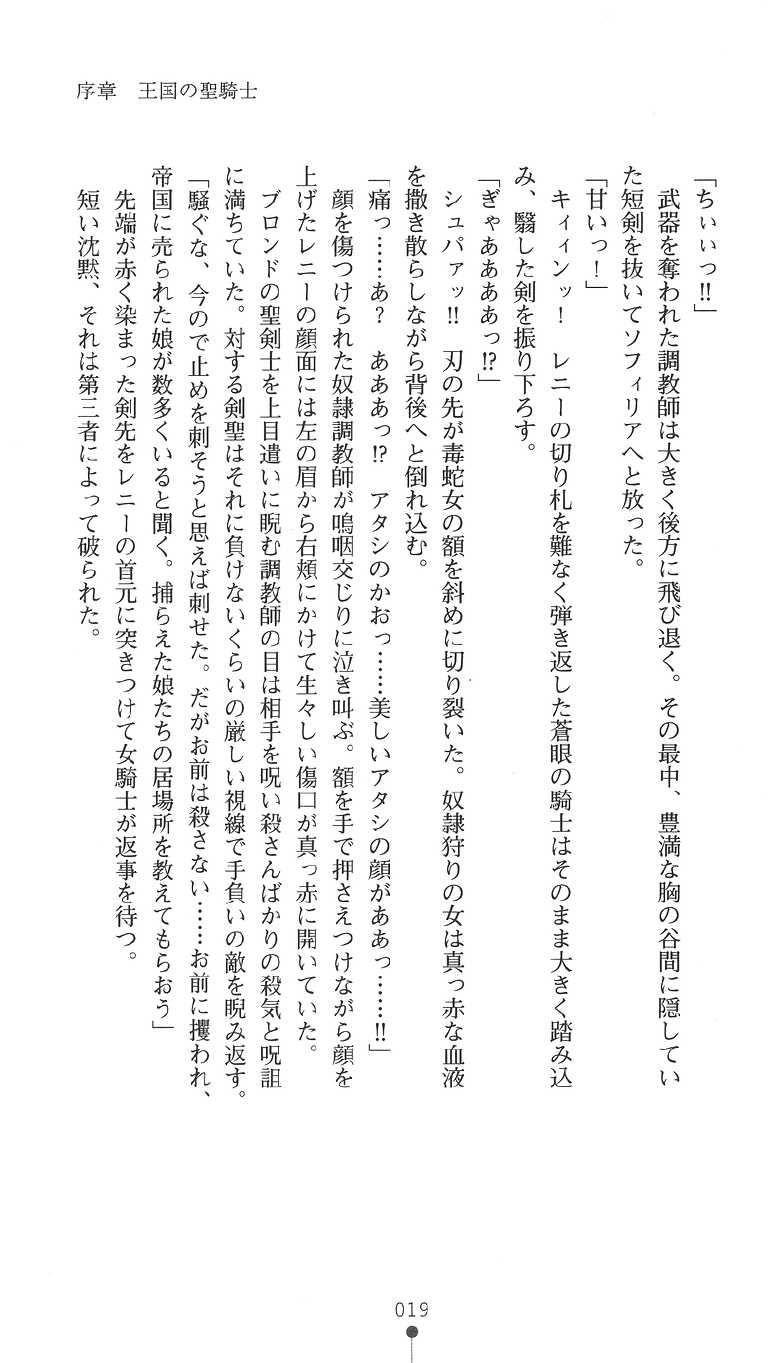 序章　王国の聖騎士
「ちぃぃっ!!」
　武器を奪われた調教師は大きく後方に飛び退く。その最中、豊満な胸の谷間に隠してい
た短剣を抜いてソフィリアへと放った。
「甘いっ！」
　キィィンッ！　レニーの切り札を難なく弾き返した蒼眼の騎士はそのまま大きく踏み込
み、翳した剣を振り下ろす。
「ぎゃああああっ!?」
　シュパァッ!!　刃の先が毒蛇女の額を斜めに切り裂いた。奴隷狩りの女は真っ赤な血液
を撒き散らしながら背後へと倒れ込む。
「痛っ……あ？　あああっ!?　アタシのかおっ……美しいアタシの顔がああっ……!!」
　顔を傷つけられた奴隷調教師が嗚咽交じりに泣き叫ぶ。額を手で押さえつけながら顔を
上げたレニーの顔面には左の眉から右頬にかけて生々しい傷口が真っ赤に開いていた。
　ブロンドの聖剣士を上目遣いに睨む調教師の目は相手を呪い殺さんばかりの殺気と呪詛
に満ちていた。対する剣聖はそれに負けないくらいの厳しい視線で手負いの敵を睨み返す。
「騒ぐな、今ので止めを刺そうと思えば刺せた。だがお前は殺さない……お前に攫われ、
帝国に売られた娘が数多くいると聞く。捕らえた娘たちの居場所を教えてもらおう」
　先端が赤く染まった剣先をレニーの首元に突きつけて女騎士が返事を待つ。
　短い沈黙、それは第三者によって破られた。
019